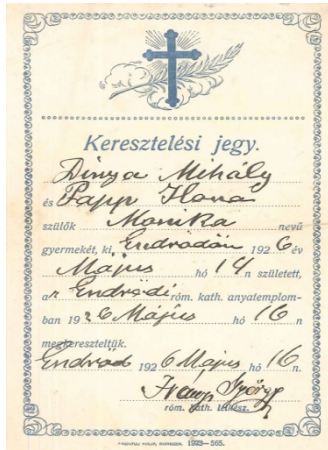 Keresztelési jegy.
Dinya Mihály
és Papp Ilona
szülők Monika nevű
gyermekét, ki, Endrődön 1926 év
Május hó 14n született,
a r Endrődi róm. kath. anyatemplom-
ban 1926 Május hó 16n
megkereszteltük.
Endrőd 1926 Május hó 16n.
György
róm. kath. lelkész.
1923—565.